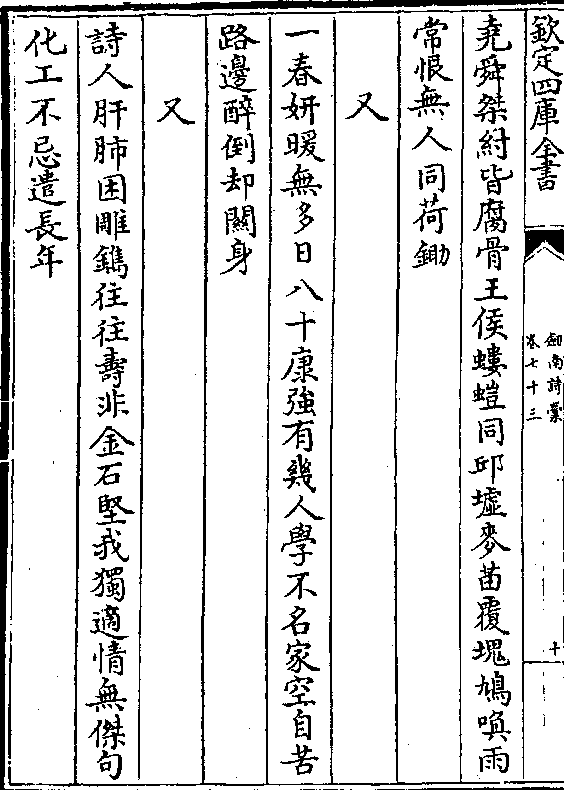 欽定四庫全書
劍南詩藁
卷七十三
十
堯舜桀紂皆腐骨王侯螻螘同邱墟麥苗覆塊鳩喚雨
常恨無人同荷鋤
又
一春妍暖無多日八十康強有幾人學不名家空自苦
路邊醉倒却關身
又
詩人肝肺困雕鐫往往壽非金石堅我獨適情無傑句
化工不忌遣長年